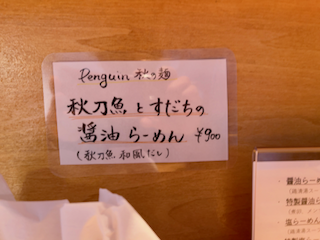 Penguin 秋の麺
秋刀魚とすだちの
醤油らーめん ¥900
(秋刀魚和風だし)
醤油らーめ
特製醤油ら
塩らーめん